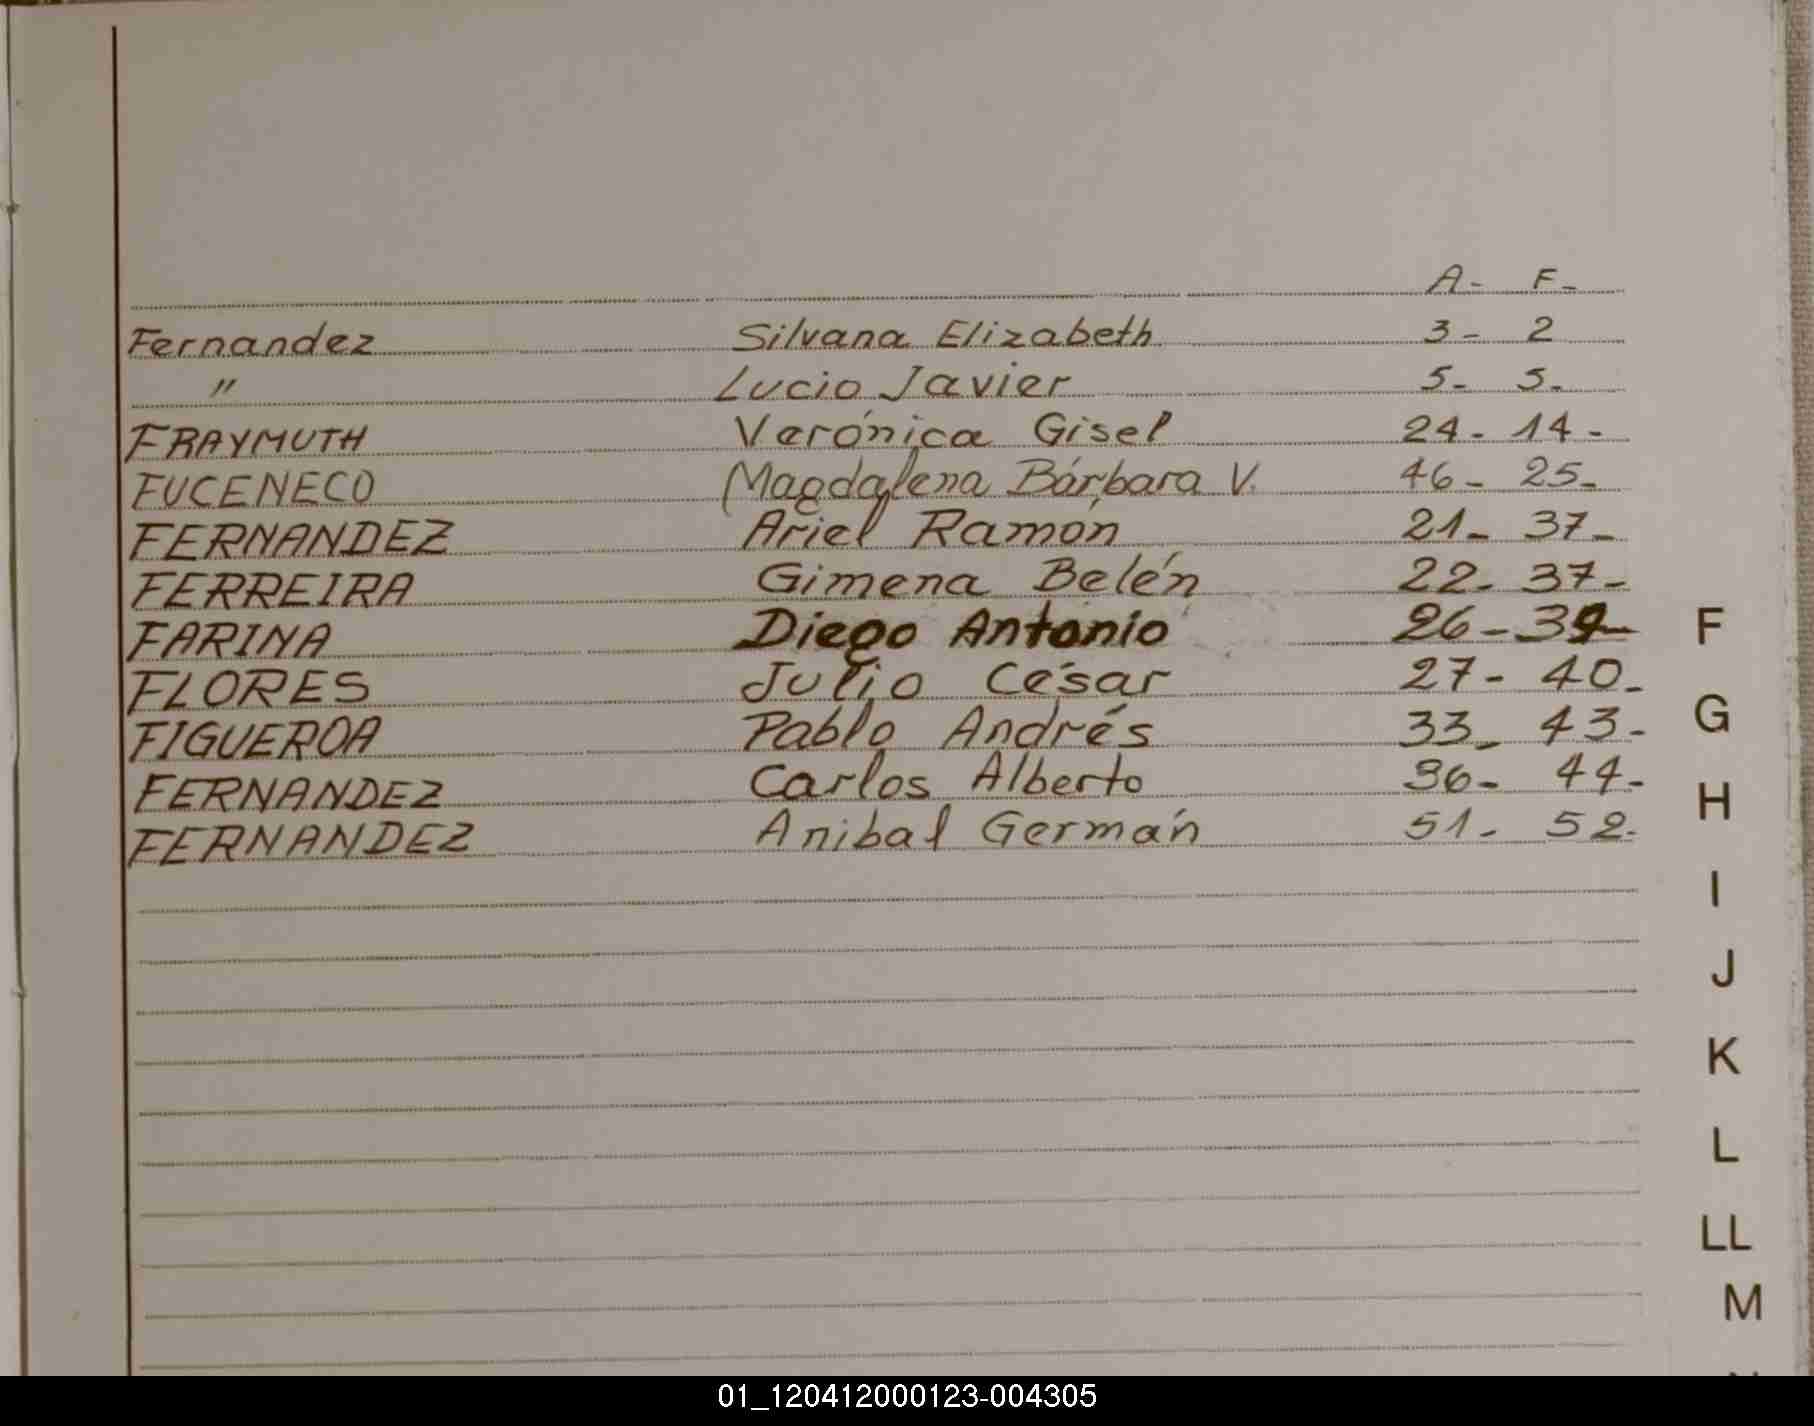 A- F-
Fernandez Silvana Elizabeth 3- 2
" Lucio Javier 5- 5-
FRAYMUTH Verónica Gisel 24- 14-
FUCENECO Magdalena Bárbara V. 46- 25-
FERNANDEZ Ariel Ramón 21- 37-
FERREIRA Gimena Belén 22- 37-
FARINA Diego Antonio 26- 39-
FLORES Julio César 27- 40-
FIGUEROA Pablo Andrés 33- 43-
FERNANDEZ Carlos Alberto 36- 44-
FERNANDEZ Anibal Germán 51- 52-
F
G
H
I
J
K
L
LL
M
01_120412000123-004305